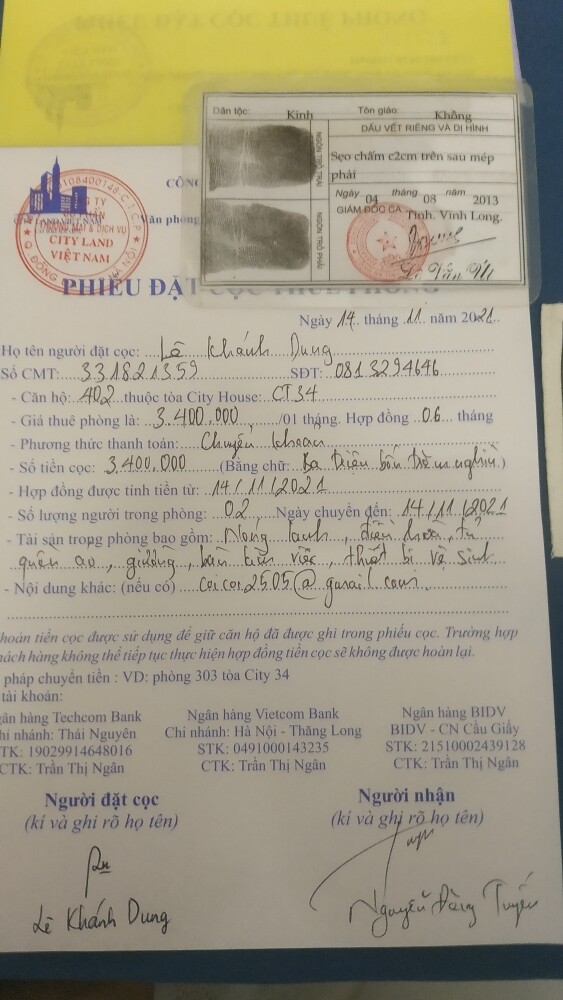 PHIẾU ĐẶT CỌC THUÊ PHÒNG
Dân tộc: Kinh Tôn giáo: Không
NGÓN TRỎ TRÁI
NGÓN TRỎ PHẢI
DẤU VẾT RIÊNG VÀ DỊ HÌNH
Sẹo chấm c2cm trên sau mép
phải
Ngày 04 tháng 08 năm 2013
GIÁM ĐỐC CA Tỉnh. Vĩnh Long.
CÔN
Văn phòng
THƯƠNG MẠI & DỊCH VỤ
CITY LAND
VIỆT NAM
PHIẾU ĐẶT CỌC THUÊ PHÒNG
Ngày 14 tháng 11 năm 2021
Họ tên người đặt cọc: Lê Khánh Dung
Số CMT: 331821359 SĐT: 0813294646
- Căn hộ: 402 thuộc tòa City House: CT34
- Giá thuê phòng là: 3.400.000 /01 tháng. Hợp đồng 06 tháng
- Phương thức thanh toán: Chuyển khoản
- Số tiền cọc: 3.400.000 (Bằng chữ: Ba triệu bốn trăm nghìn.)
- Hợp đồng được tính tiền từ: 14/11/2021
- Số lượng người trong phòng: 02 Ngày chuyển đến: 14/11/2021
- Tài sản trong phòng bao gồm: Nóng lạnh, điều hoà, tủ
quần áo, giường, bàn làm việc, thiết bị vệ sinh
- Nội dung khác: (nếu có) coicoi2505@gmail.com
hoản tiền cọc được sử dụng để giữ căn hộ đã được ghi trong phiếu cọc. Trường hợp
hách hàng không thể tiếp tục thực hiện hợp đồng tiền cọc sẽ không được hoàn lại.
pháp chuyển tiền : VD: phòng 303 tòa City 34
tài khoản:
gân hàng Techcom Bank Ngân hàng Vietcom Bank Ngân hàng BIDV
hi nhánh: Thái Nguyên Chi nhánh: Hà Nội - Thăng Long BIDV - CN Cầu Giấy
TK: 19029914648016 STK: 0491000143235 STK: 21510002439128
CTK: Trần Thị Ngân CTK: Trần Thị Ngân CTK: Trần Thị Ngân
Người đặt cọc Người nhận
(kí và ghi rõ họ tên) (kí và ghi rõ họ tên)
Lê Khánh Dung Nguyễn Đăng Tuyến